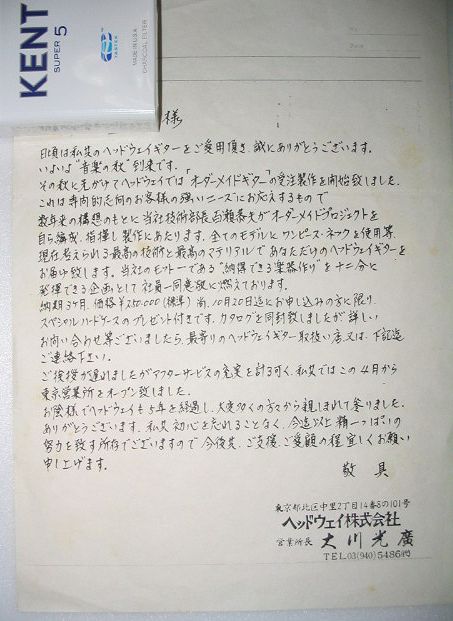 KENT
SUPER 5
TASTEK
MADE IN U.S.A.
CHARCOAL FILTER
No.
Date
様
日頃は私共のヘッドウェイギターをご愛用頂き、誠にありがとうございます。
いよいよ"音楽の秋"到来です。
その秋に先がけてヘッドウェイでは「オーダーメイドギター」の受注製作を開始致しました。
これは専門的志向のお客様の強いニーズにお応えするもので
数年来の構想のもとに当社技術部長百瀬恭夫がオーダーメイドプロジェクトを
自ら編成、指揮し製作にあたります。全てのモデルにワンピース・ネックを使用等、
現在考えられる最高の技術と最高のマテリアルであなただけのヘッドウェイギターを
お届け致します。当社のモットーである"納得できる楽器作り"を十二分に
発揮できる企画として社員一同意欲に燃えております。
納期3ヶ月、価格¥250,000(標準) 尚、10月20日迄にお申し込みの方に限り、
スペシャルハードケースのプレゼント付きです。カタログを同封致しましたが詳しい
お問い合わせ等ございましたら、最寄りのヘッドウェイギター取扱い店又は、下記迄
ご連絡下さい。
ご挨拶が遅れましたがアフターサービスの充実を計る可く、私共ではこの4月から
東京営業所をオープン致しました。
お陰様でヘッドウェイも5年を経過し、大変多くの方々から親しまれて参りました。
ありがとうございます。私共初心を忘れることなく、今迄以上 精一っぱいの
努力を致す所存でございますので 今後共、ご支援、ご愛顧の程 宜しくお願い
申し上げます。
敬具
東京都北区中里2丁目14番8の101号
ヘッドウェイ株式会社
営業所長 大川光廣
TEL.03(940)5486